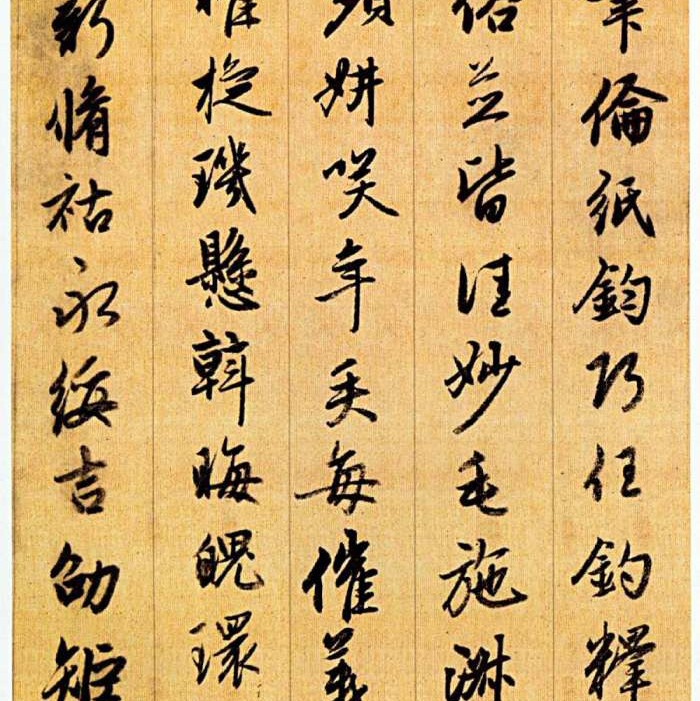 筆倫紙鈞巧任釣釋
俗並皆佳妙毛施淑
妍咲年矢每催羲
曜璇璣懸斡晦魄環
薪脩祜永綏吉劭矩